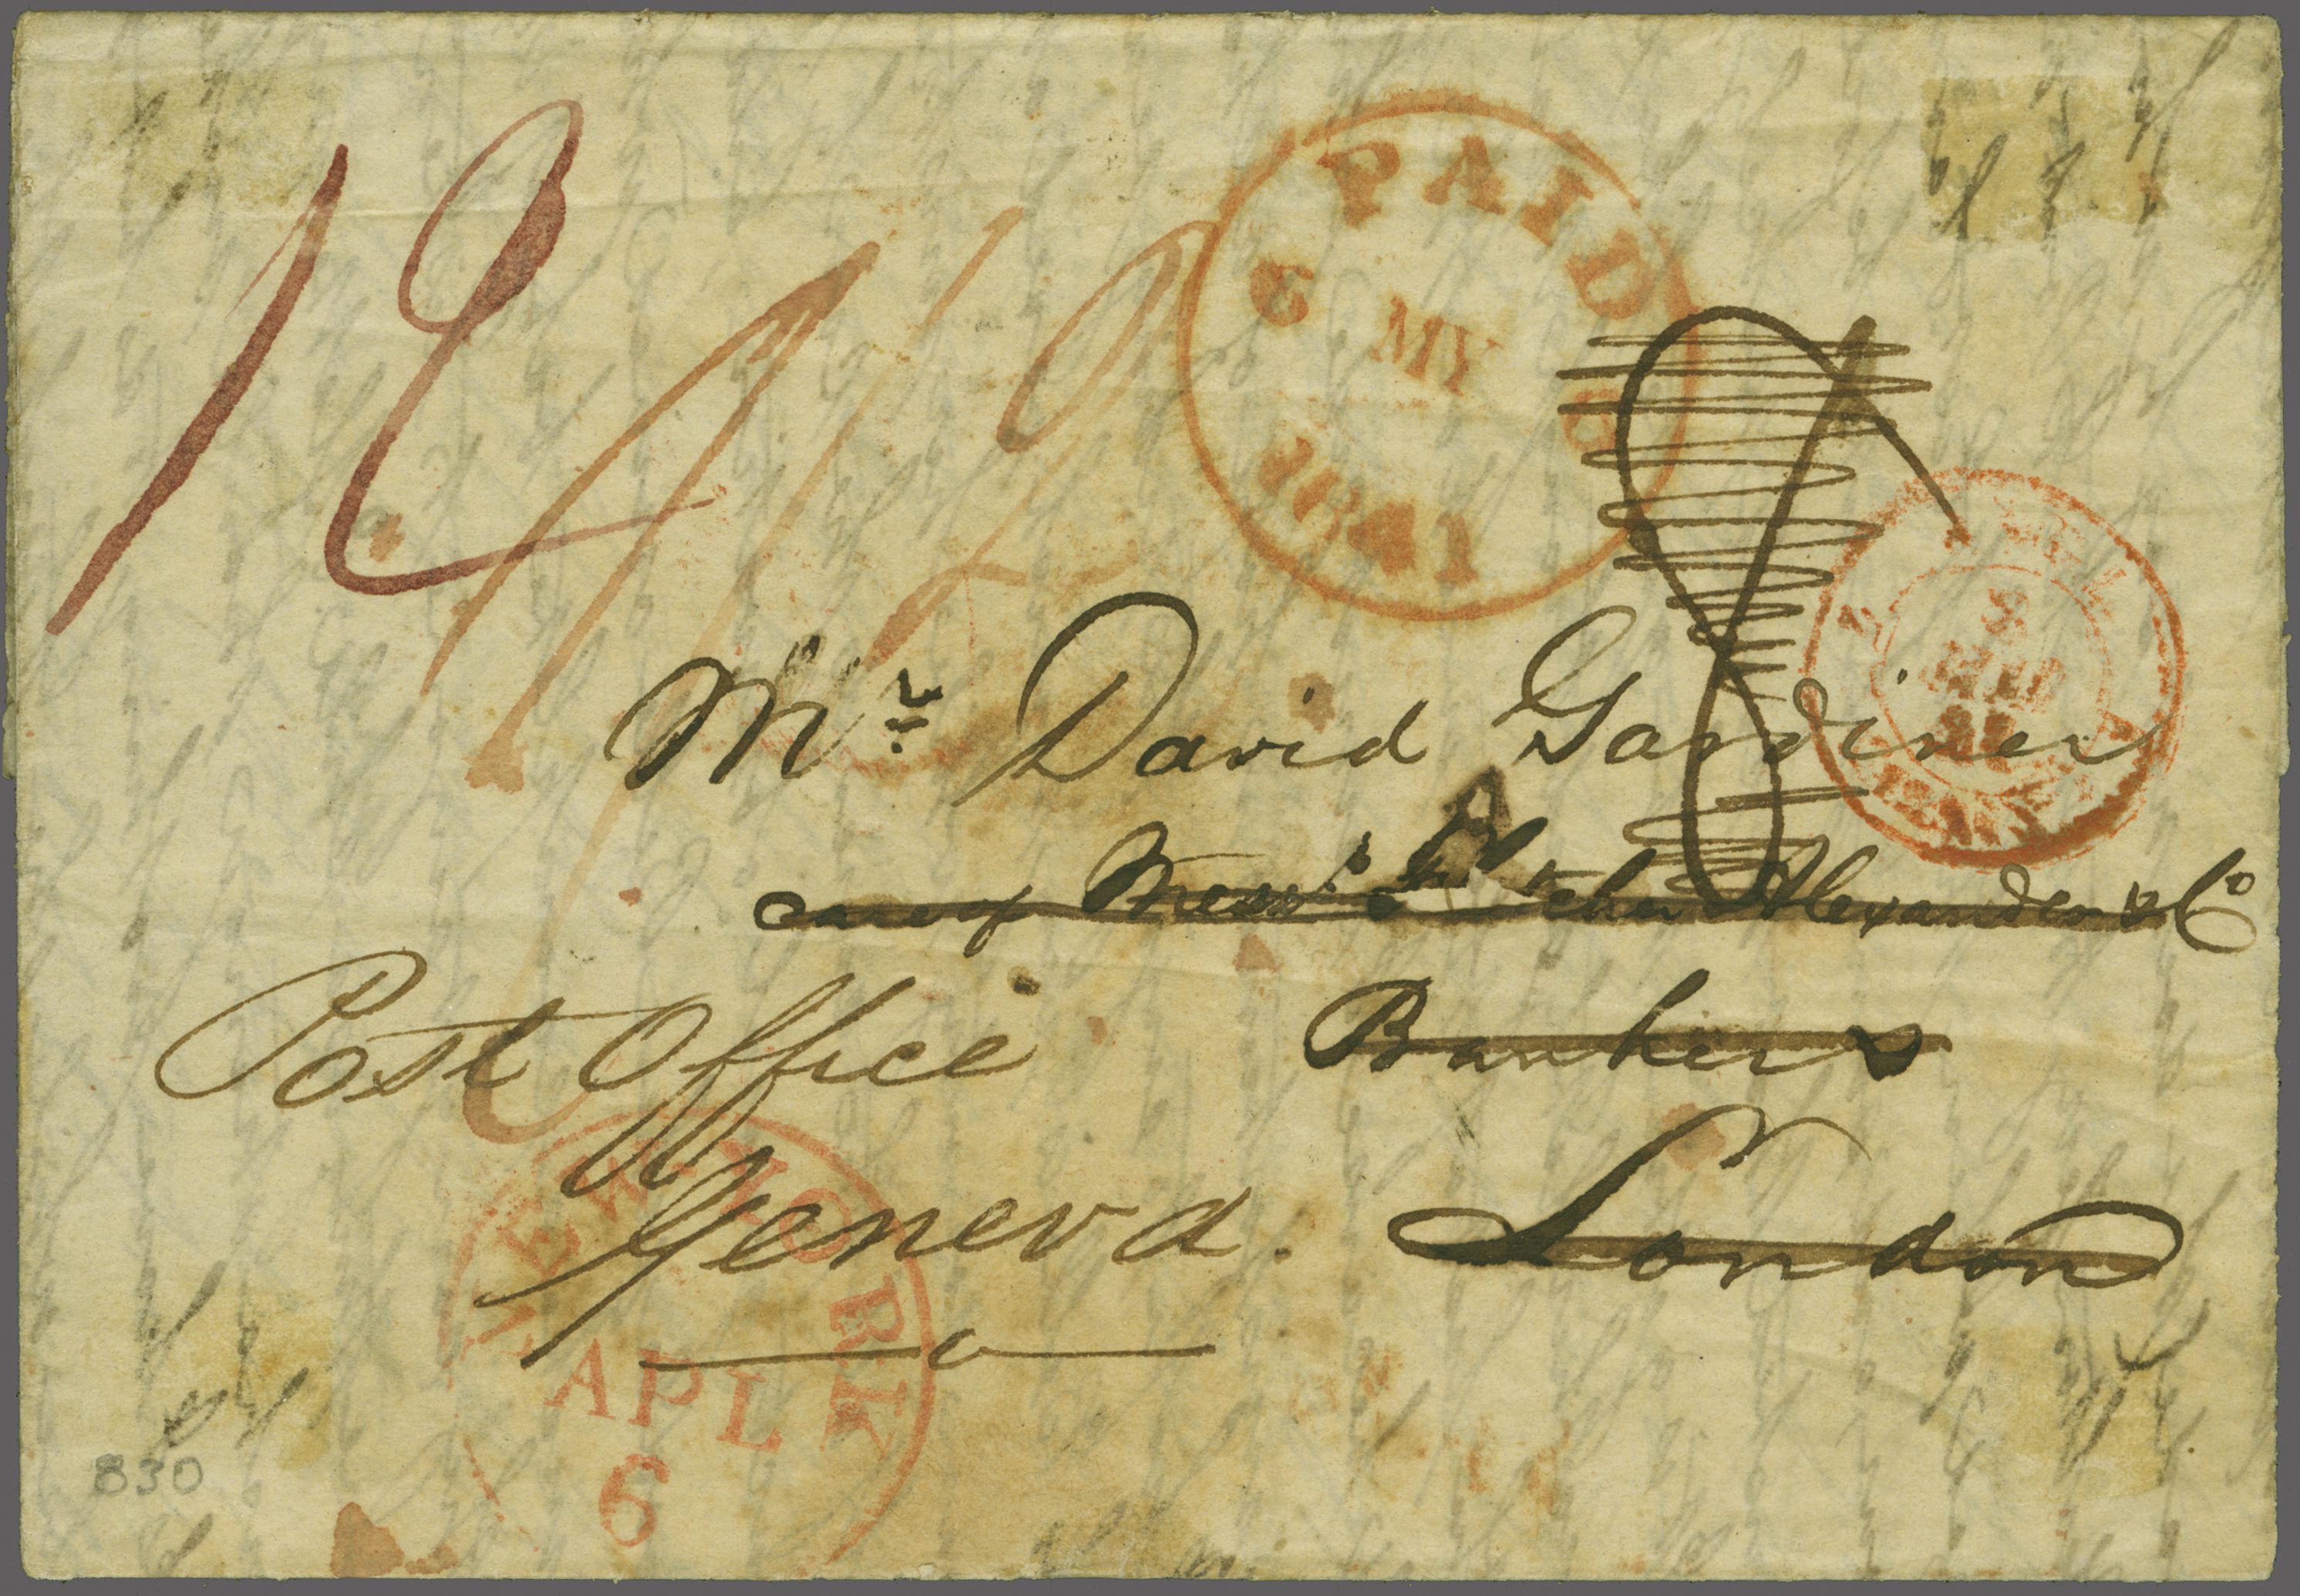 12
1/9
PAID
6 MY 6
1841
Mr David Gardiner
care of Messrs John Alexander & Co
Post Office
Bankers
Geneva.
London
NEW-YORK
APL
6
830